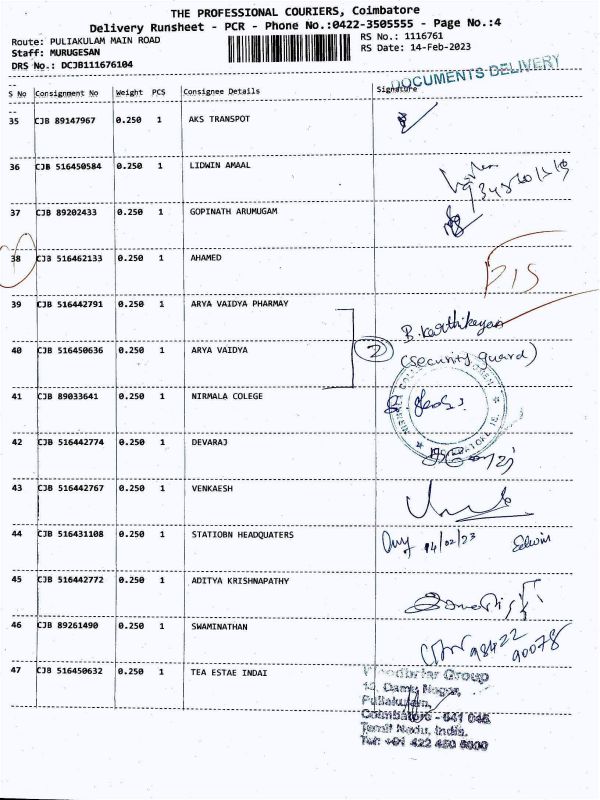 THE PROFESSIONAL COURIERS, Coimbatore
Delivery Runsheet - PCR - Phone No.:0422-3505555 - Page No.:4
Route: PULIAKULAM MAIN ROAD
Staff: MURUGESAN
DRS No.: DCJB111676104
RS No.: 1116761
RS Date: 14-Feb-2023
DOCUMENTS DELIVERY
S No Consignment No Weight PCS Consignee Details Signature
35 CJB 89147967 0.250 1 AKS TRANSPOT
36 CJB 516450584 0.250 1 LIDWIN AMAAL
37 CJB 89202433 0.250 1 GOPINATH ARUMUGAM
38 CJB 516462133 0.250 1 AHAMED
39 CJB 516442791 0.250 1 ARYA VAIDYA PHARMAY
B. Karthikeyan
40 CJB 516450636 0.250 1 ARYA VAIDYA 2 (Security guard)
41 CJB 89033641 0.250 1 NIRMALA COLEGE
42 CJB 516442774 0.250 1 DEVARAJ
43 CJB 516442767 0.250 1 VENKAESH
44 CJB 516431108 0.250 1 STATIOBN HEADQUATERS 14/02/23 Edwin
45 CJB 516442772 0.250 1 ADITYA KRISHNAPATHY
46 CJB 89261490 0.250 1 SWAMINATHAN 98422
90078
47 CJB 516450632 0.250 1 TEA ESTAE INDAI
Woodbriar Group
12, Damu Nagar,
Puliakulam,
Coimbatore - 641 045
Tamil Nadu, India.
Tel: +91 422 450 5000